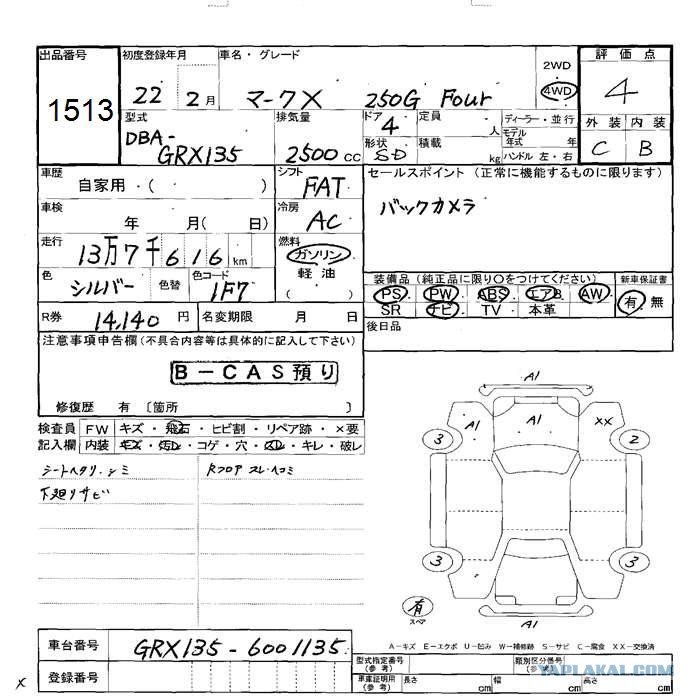 出品番号 初度登録年月 車名・グレード 2WD 評価点
1513 22 2月 マークX 250G Four 4WD 4
型式 排気量 ドア 4 定員 人 ディーラー・並行 外装 内装
DBA-GRX135 2500cc 形状 SD 積載 kg モデル年式 年 C B
ハンドル 左・右
車歴 自家用・( ) シフト FAT セールスポイント (正常に機能するものに限ります)
車検 年 月( 日) 冷房 AC バックカメラ
走行 13万7千616km 燃料 ガソリン・軽油 ( )
色 シルバー 色替 色コード 1F7 装備品 (純正品に限り○をつけてください) 新車保証書
PS・PW・ABS・エアB・AW 有・無
SR ナビ・TV・本革
R券 14,140円 名変期限 月 日 後日品
注意事項申告欄(不具合内容等は具体的に記入して下さい)
B-CAS預り
修復歴 有 〔箇所 〕
検査員 FW キズ・飛石・ヒビ割・リペア跡・×要
記入欄 内装 キズ・汚レ・コゲ・穴・スレ・キレ・破レ
シートヘタリ、シミ Rフロア スレ、ヘコミ
下廻りサビ
A1
A1 A1 XX
3 2
3 3
有
スペア A1
A-キズ E-エクボ U-凹み W-補修跡 S-サビ C-腐食 XX-交換済
車台番号 GRX135-6001135
型式指定番号(参考) 類別区分番号(参考)
登録番号 車庫証明用(参考) 長さ cm 幅 cm 高さ cm
X
YAPLAKAL.COM